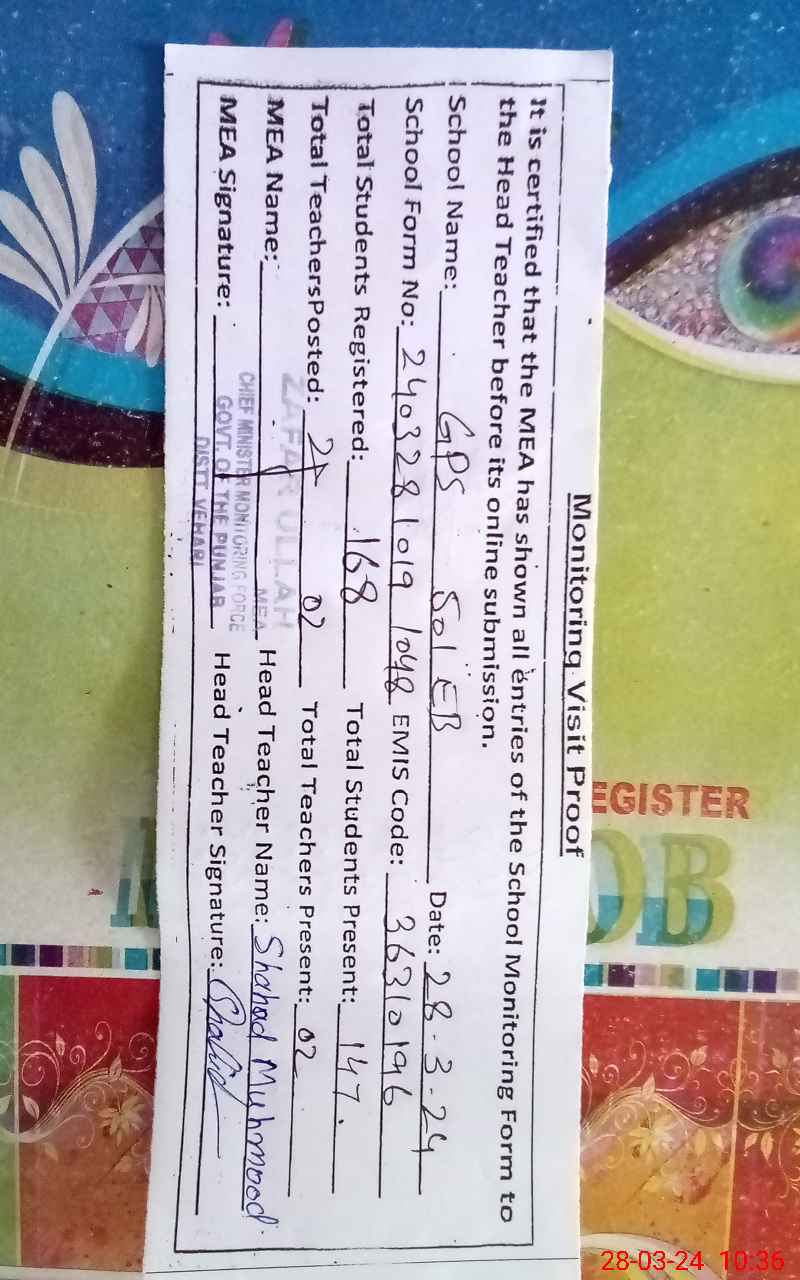 Monitoring Visit Proof
It is certified that the MEA has shown all entries of the School Monitoring Form to
the Head Teacher before its online submission.
School Name: GPS 501 EB Date: 28-3-24
School Form No: 240328 1019 1048 EMIS Code: 36310196
Total Students Registered: 168 Total Students Present: 147.
Total TeachersPosted: 02 Total Teachers Present: 02
MEA Name: Head Teacher Name: Shahad Muhmood
MEA Signature: Head Teacher Signature: Shahid
ZAFAR ULLAH
MEA
CHIEF MINISTER MONITORING FORCE
GOVT. OF THE PUNJAB
DISTT VEHARI
EGISTER
OB
28-03-24 10:36